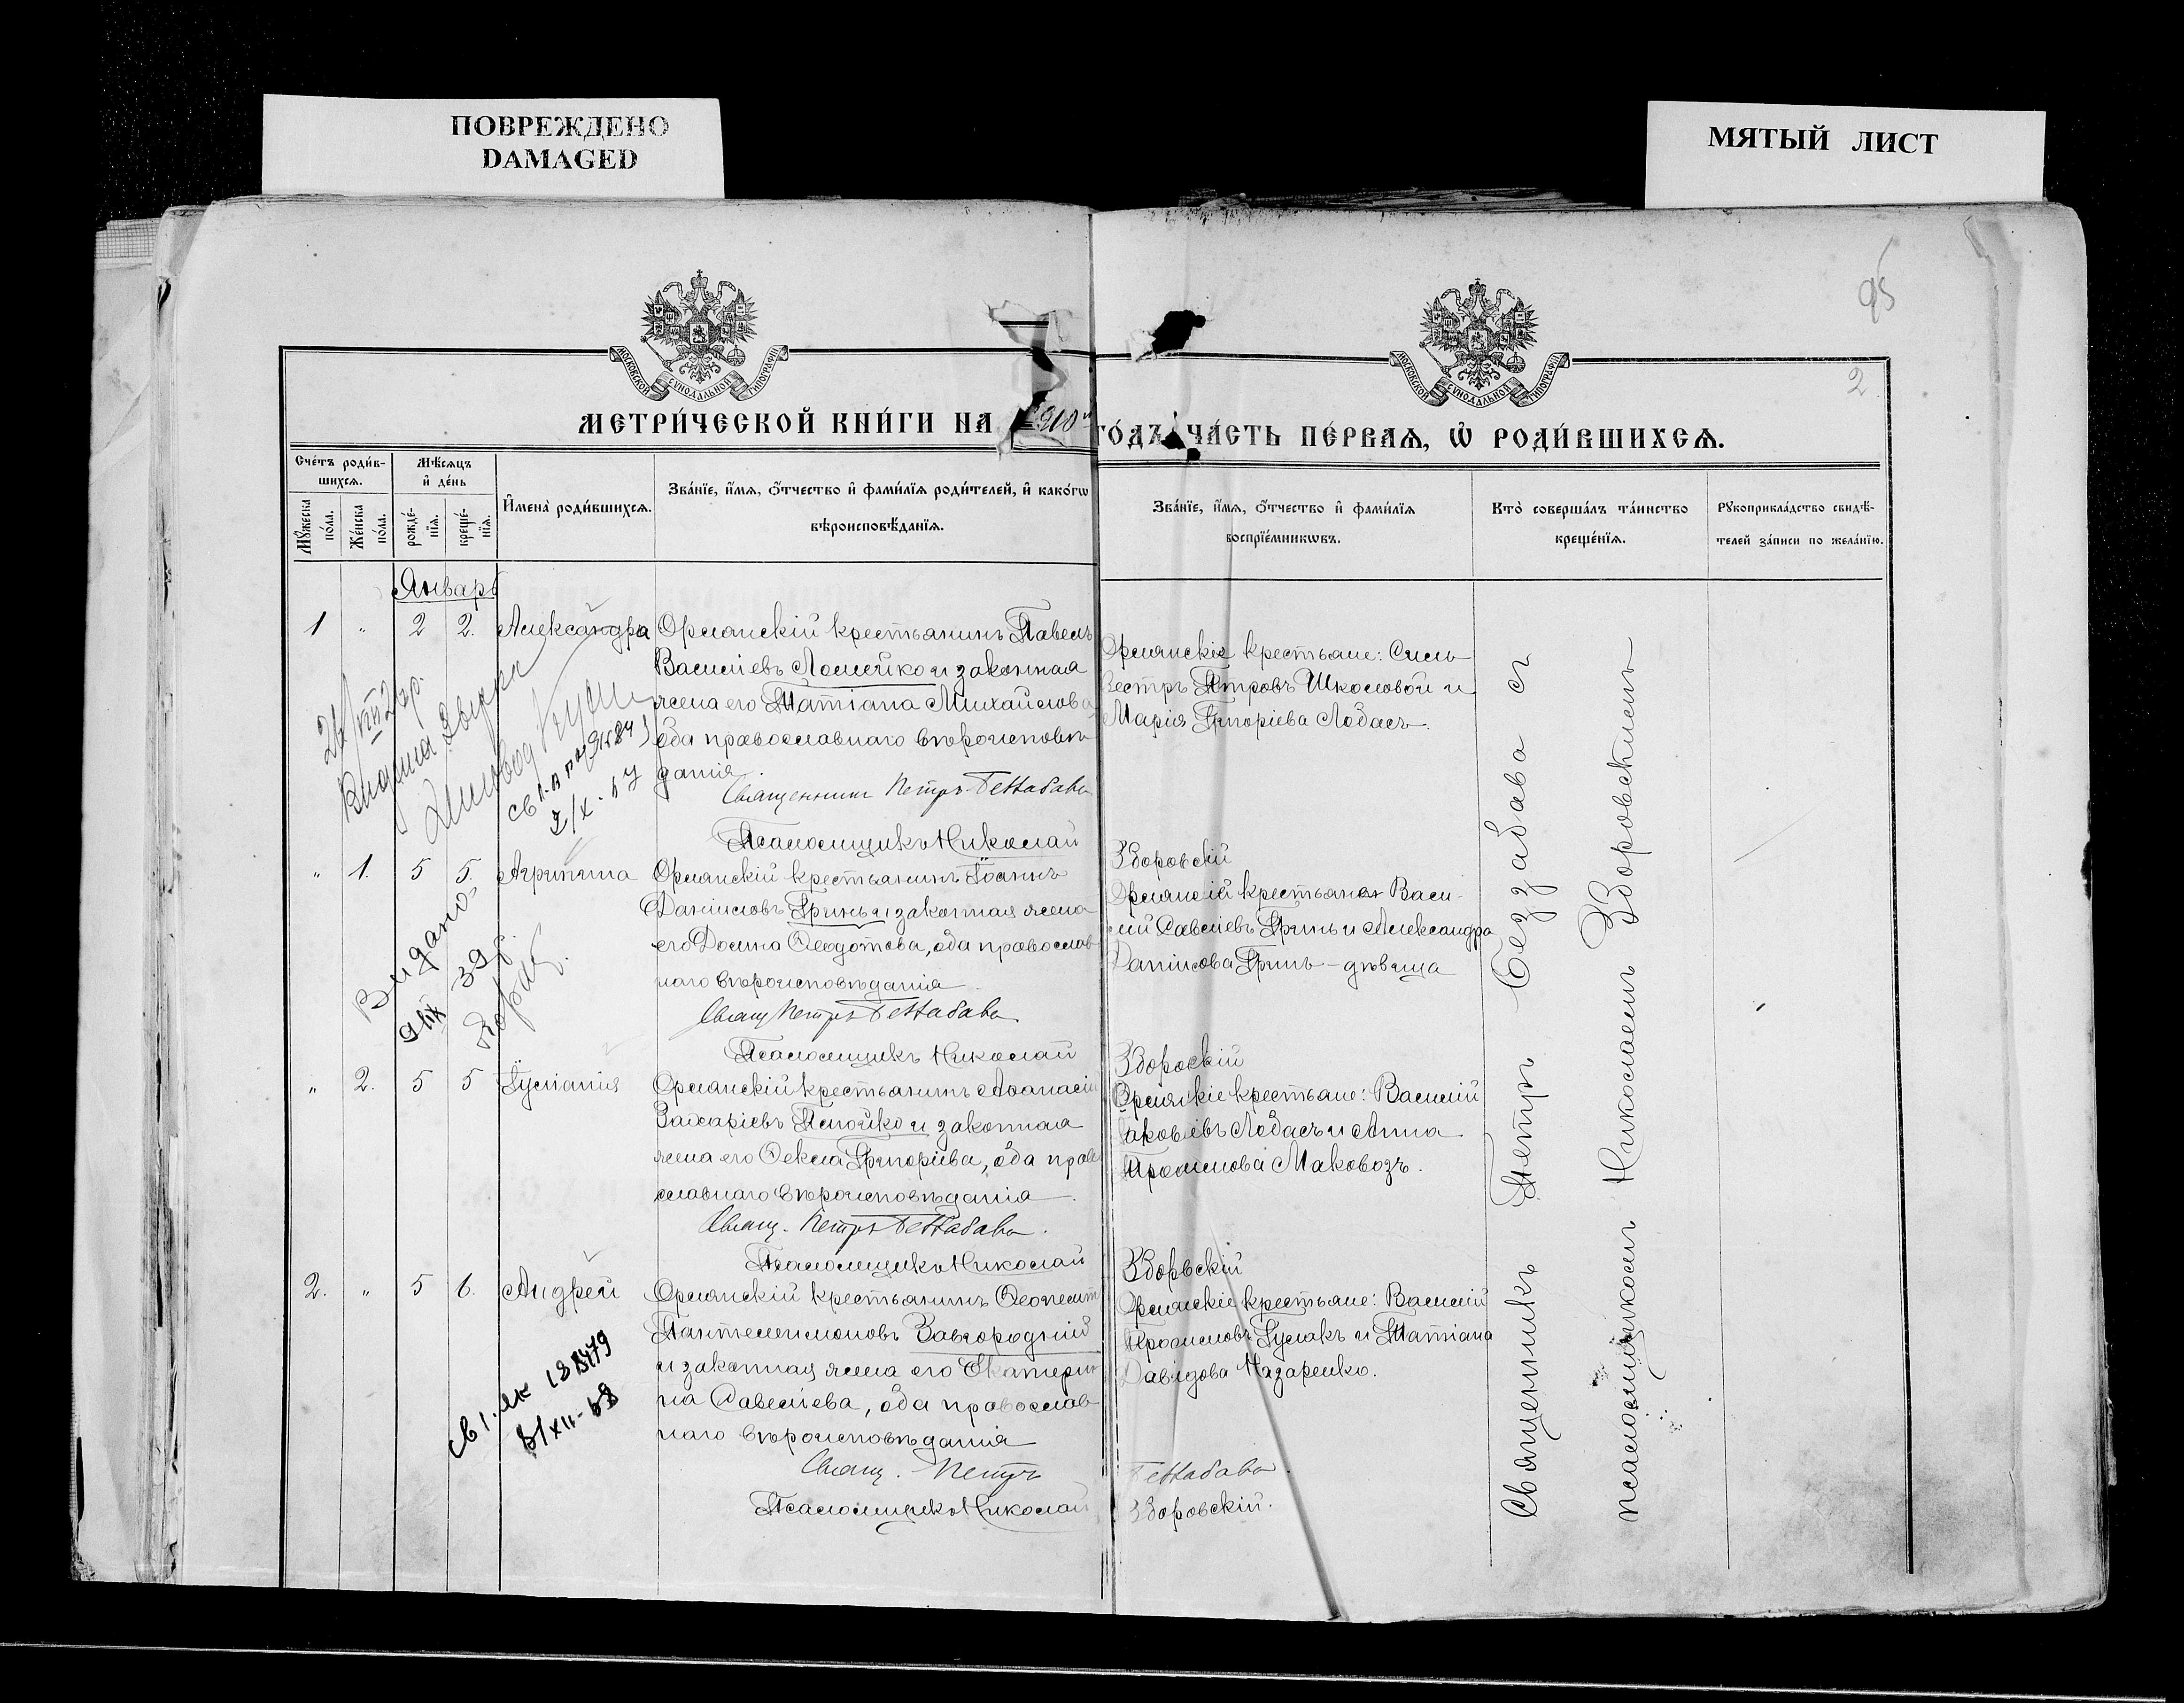 ПОВРЕЖДЕНО
DAMAGED
МЯТЫЙ ЛИСТ
95
2
МОСКОВСКОЙ СѴНОДАЛЬНОЙ ТИПОГРАФІИ
МОСКОВСКОЙ СѴНОДАЛЬНОЙ ТИПОГРАФІИ
МЕТРИ́ЧЕСКОЙ КНИ́ГИ НА 1910й ГО́ДЪ ЧА́СТЬ ПЕ́РВАѦ, Ѡ҆ РОДИ́ВШИХСѦ.
Сче́тъ роди́в-
шихсѧ.
Мꙋ́жеска по́ла.
Же́нска по́ла.
Мѣ́сѧцъ
и҆ де́нь
рожде́-
нїѧ.
креще́-
нїѧ.
И҆мена̀ роди́вшихсѧ.
Зва́нїе, и҆́мѧ, ѻ҆́тчество и҆ фами́лїѧ роди́телей, и҆ како́гѡ
вѣроисповѣ́данїѧ.
Зва́нїе, и҆́мѧ, ѻ҆́тчество и҆ фами́лїѧ
воспрїе́мникѡвъ.
Кто̀ соверша́лъ та́инство
креще́нїѧ.
Рꙋкоприкла́дство свидѣ́-
телей за́писи по жела́нїю.
Январь
1 " 2 2. Александра
Орлянскій крестьянинъ Павелъ
Василіевъ Ломейко и законная
жена его Татіана Михайлова,
оба православнаго вѣроисповѣ
данія.
Священникъ Петръ Беззабава
Псаломщикъ Николай Зборовскій
Орлянскіе крестьяне: Силь
вестръ Петровъ Школовой и
Марія Григоріева Лобасъ.
" 1. 5 5. Агрипина
Орлянскій крестьянинъ Іоаннъ
Даніиловъ Гринь и законная жена
его Домна Ѳеодотова, оба православ
наго вѣроисповѣданія
Свящ Петръ Беззабава
Псаломщикъ Николай Зборовскій
Орлянскій крестьянинъ Васи-
лій Савеліевъ Гринь и Александра
Даніилова Гринь – дѣвица
Видано
39 р.
" 2. 5 5 Іуліанія
Орлянскій крестьянинъ Аѳанасій
Захаріевъ Плюйко и законная
жена его Ѳекла Григоріева, оба право
славнаго вѣроисповѣданія.
Свящ. Петръ Беззабава.
Псаломщикъ Николай Зборовскій
Орлянскіе крестьяне: Василій
Іаковлевъ Лобасъ и Анна
Трофимова Маковозъ.
2. " 5 6. Андрей
Орлянскій крестьянинъ Ѳеопемпт
Пантелеимоновъ Завгородній
и законная жена его Екатери
на Савеліева, оба православ
наго вѣроисповѣданія
Свящ. Петръ Беззабава.
Псаломщикъ Николай Зборовскій.
Орлянскіе крестьяне: Василій
Трофимовъ Гулакъ и Татіана
Давидова Назаренко.
Священникъ Петръ Беззабава съ
псаломщикомъ Николаемъ Зборовскимъ